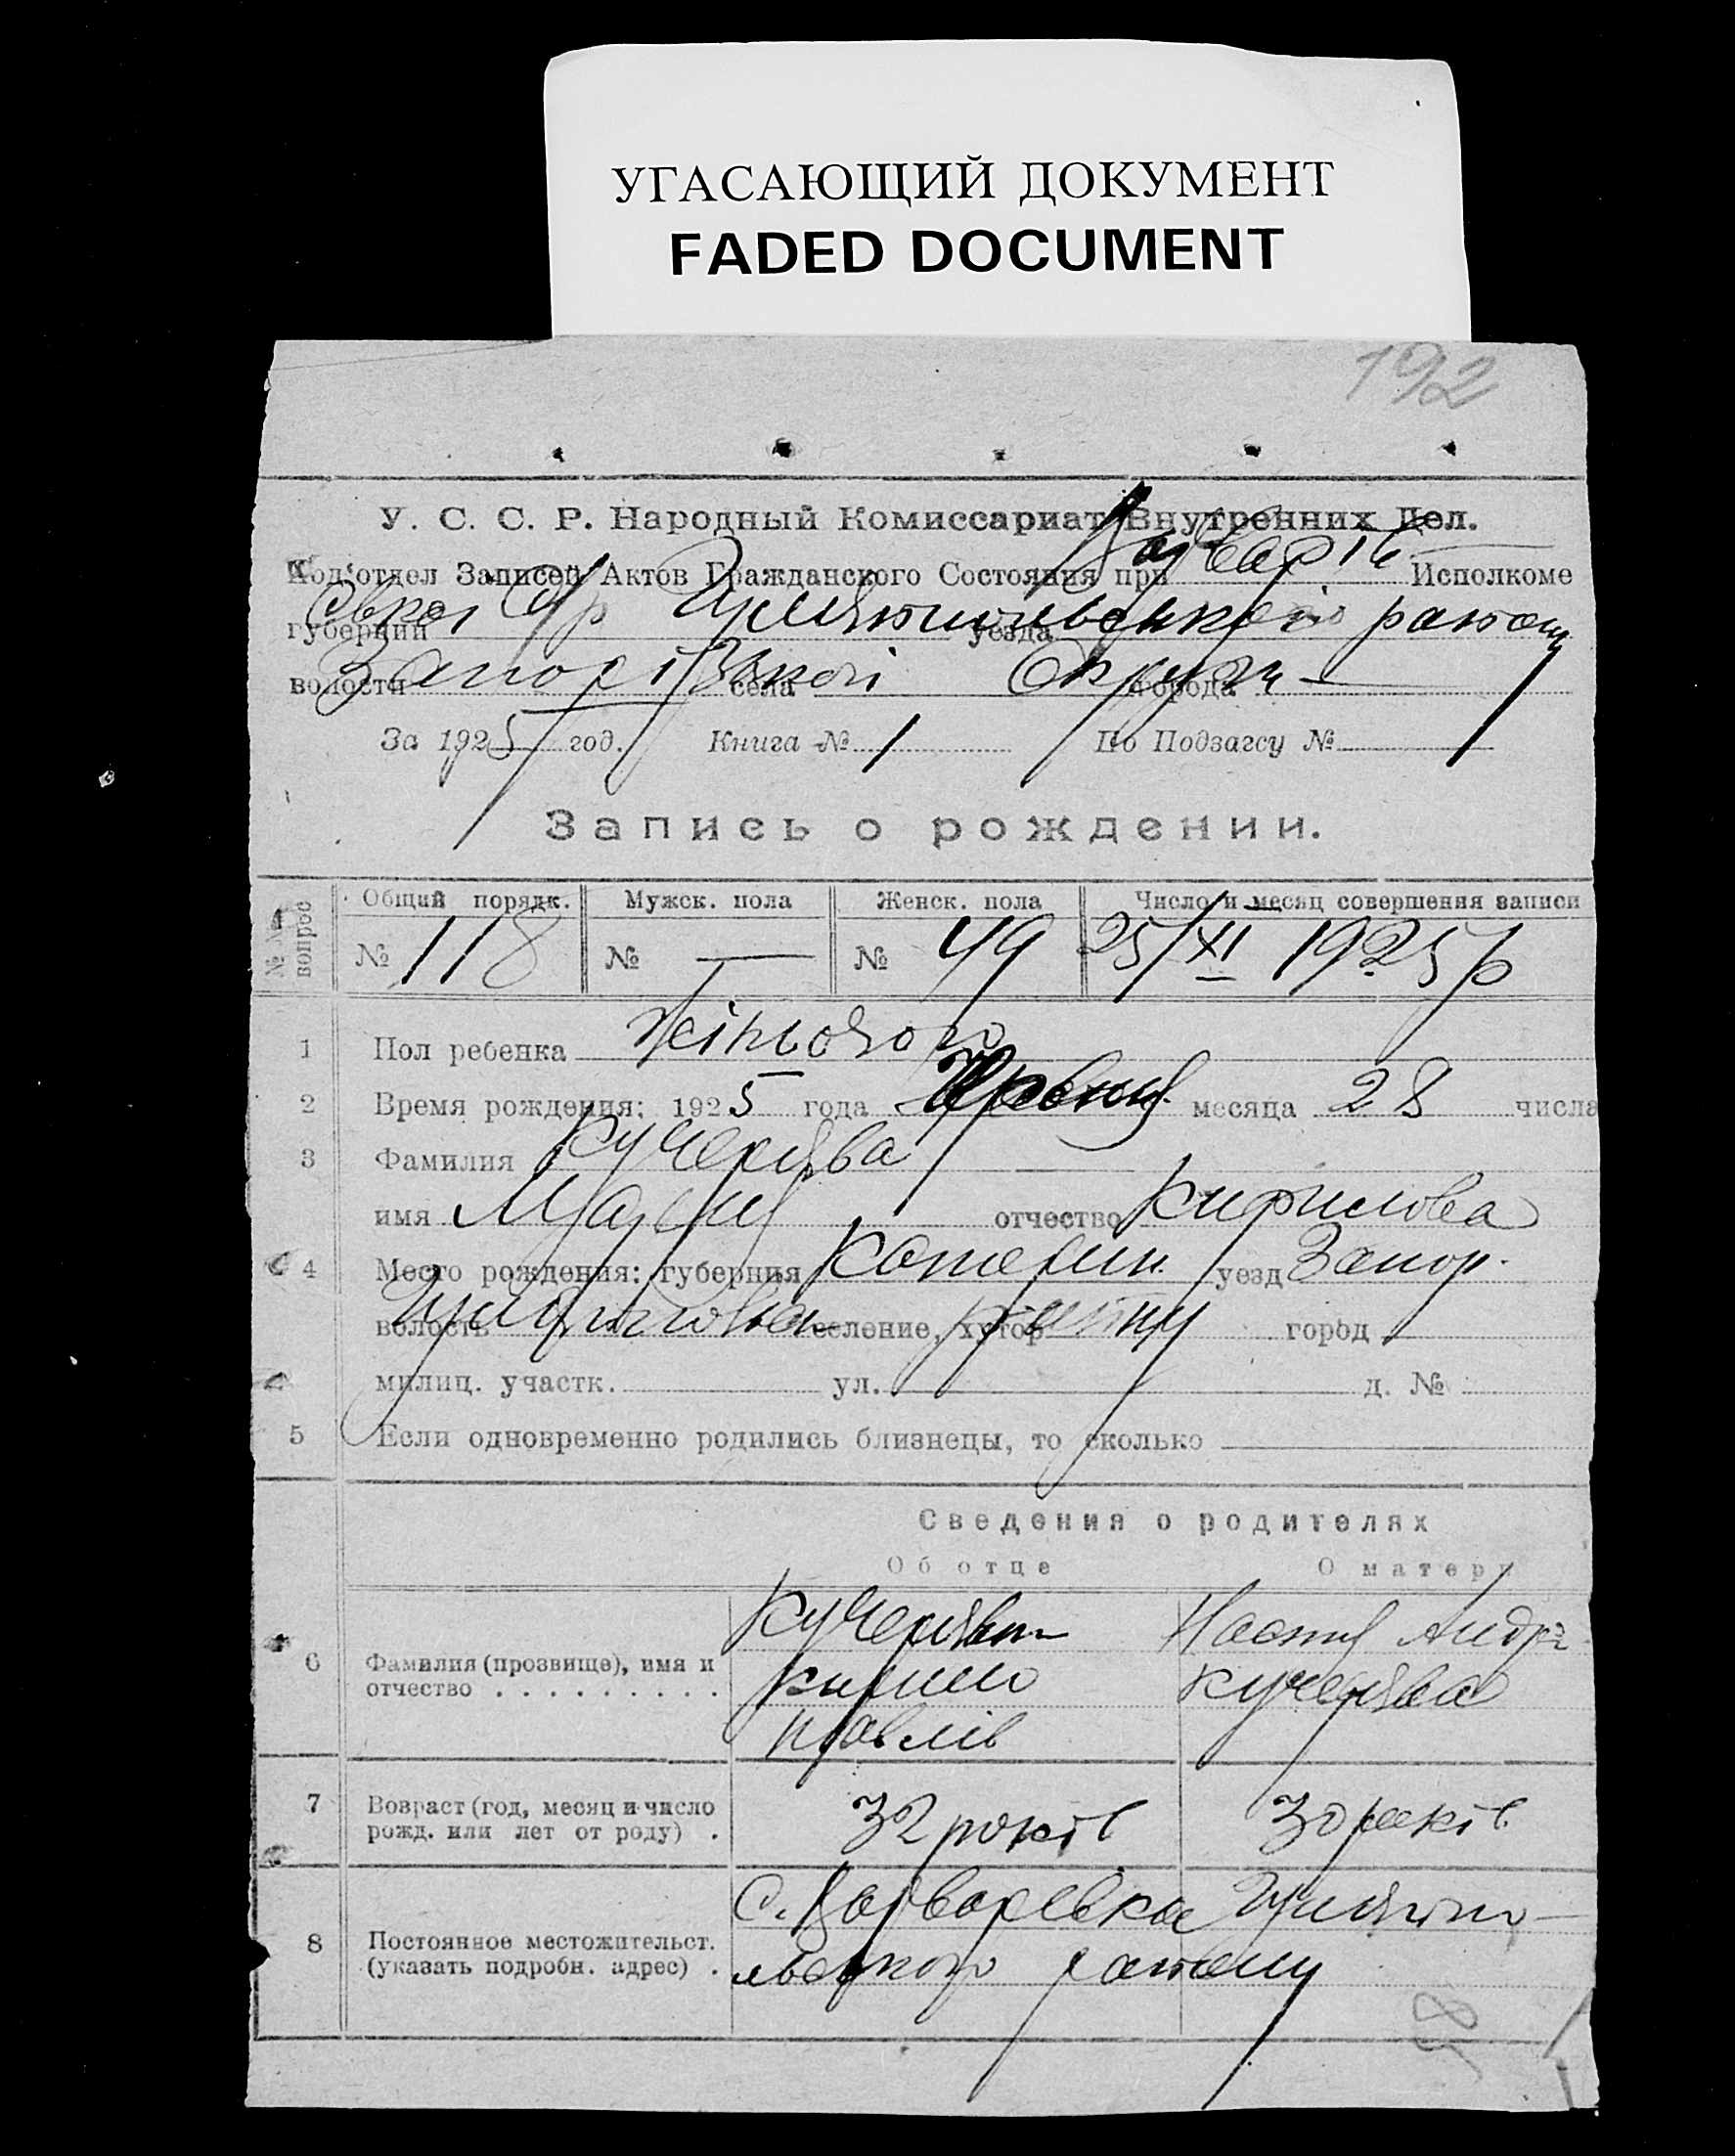 УГАСАЮЩИЙ ДОКУМЕНТ
FADED DOCUMENT
192
У. С. С. Р. Народный Комиссариат Внутренних Дел.
Подотдел Записей Актов Гражданского Состояния при Исполкоме
губернии уезда району
волости Запорізької села Округи города
За 1925 год. Книга № 1 По Подзагсу №
Запись о рождении.
№№ вопрос
Общий порядк. Мужск. пола Женск. пола Число и месяц совершения записи
№ 118 № — № 49 25/XI 1925 р
1 Пол ребенка жіночого
2 Время рождения: 1925 года месяца 28 числа
3 Фамилия Кучерява
имя Марія отчество Кирилова
4 Место рождения: губерния Катерин. уезд Запор.
волость селение, хутор город
милиц. участк. ул. д. №
5 Если одновременно родились близнецы, то сколько
Сведения о родителях
Об отце О матери
6 Фамилия (прозвище), имя и отчество
Кучерявий Настя Андр
Кирило Кучерява
Павлів
7 Возраст (год, месяц и число рожд. или лет от роду) . 32 років 30 років
8 Постоянное местожительст. (указать подробн. адрес) .
с. Варварівка
льського району